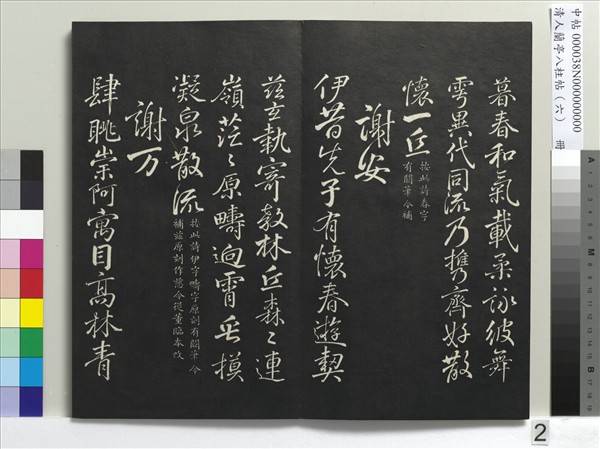 中帖 000038N000000000
清人蘭亭八柱帖（六） 冊
暮春和氣載柔詠彼舞
雩異代同流乃攜齊好散
懷一丘
按此詩春字
有闕筆今補
謝安
伊昔先子有懷春遊契
茲玄執寄敖林丘森〻連
嶺茫〻原疇逈霄垂模
凝泉散流
按此詩伊字疇字原刻有闕筆今
補茲原刻作慈今從董臨本改
謝万
肆眺崇阿寓目高林青
2